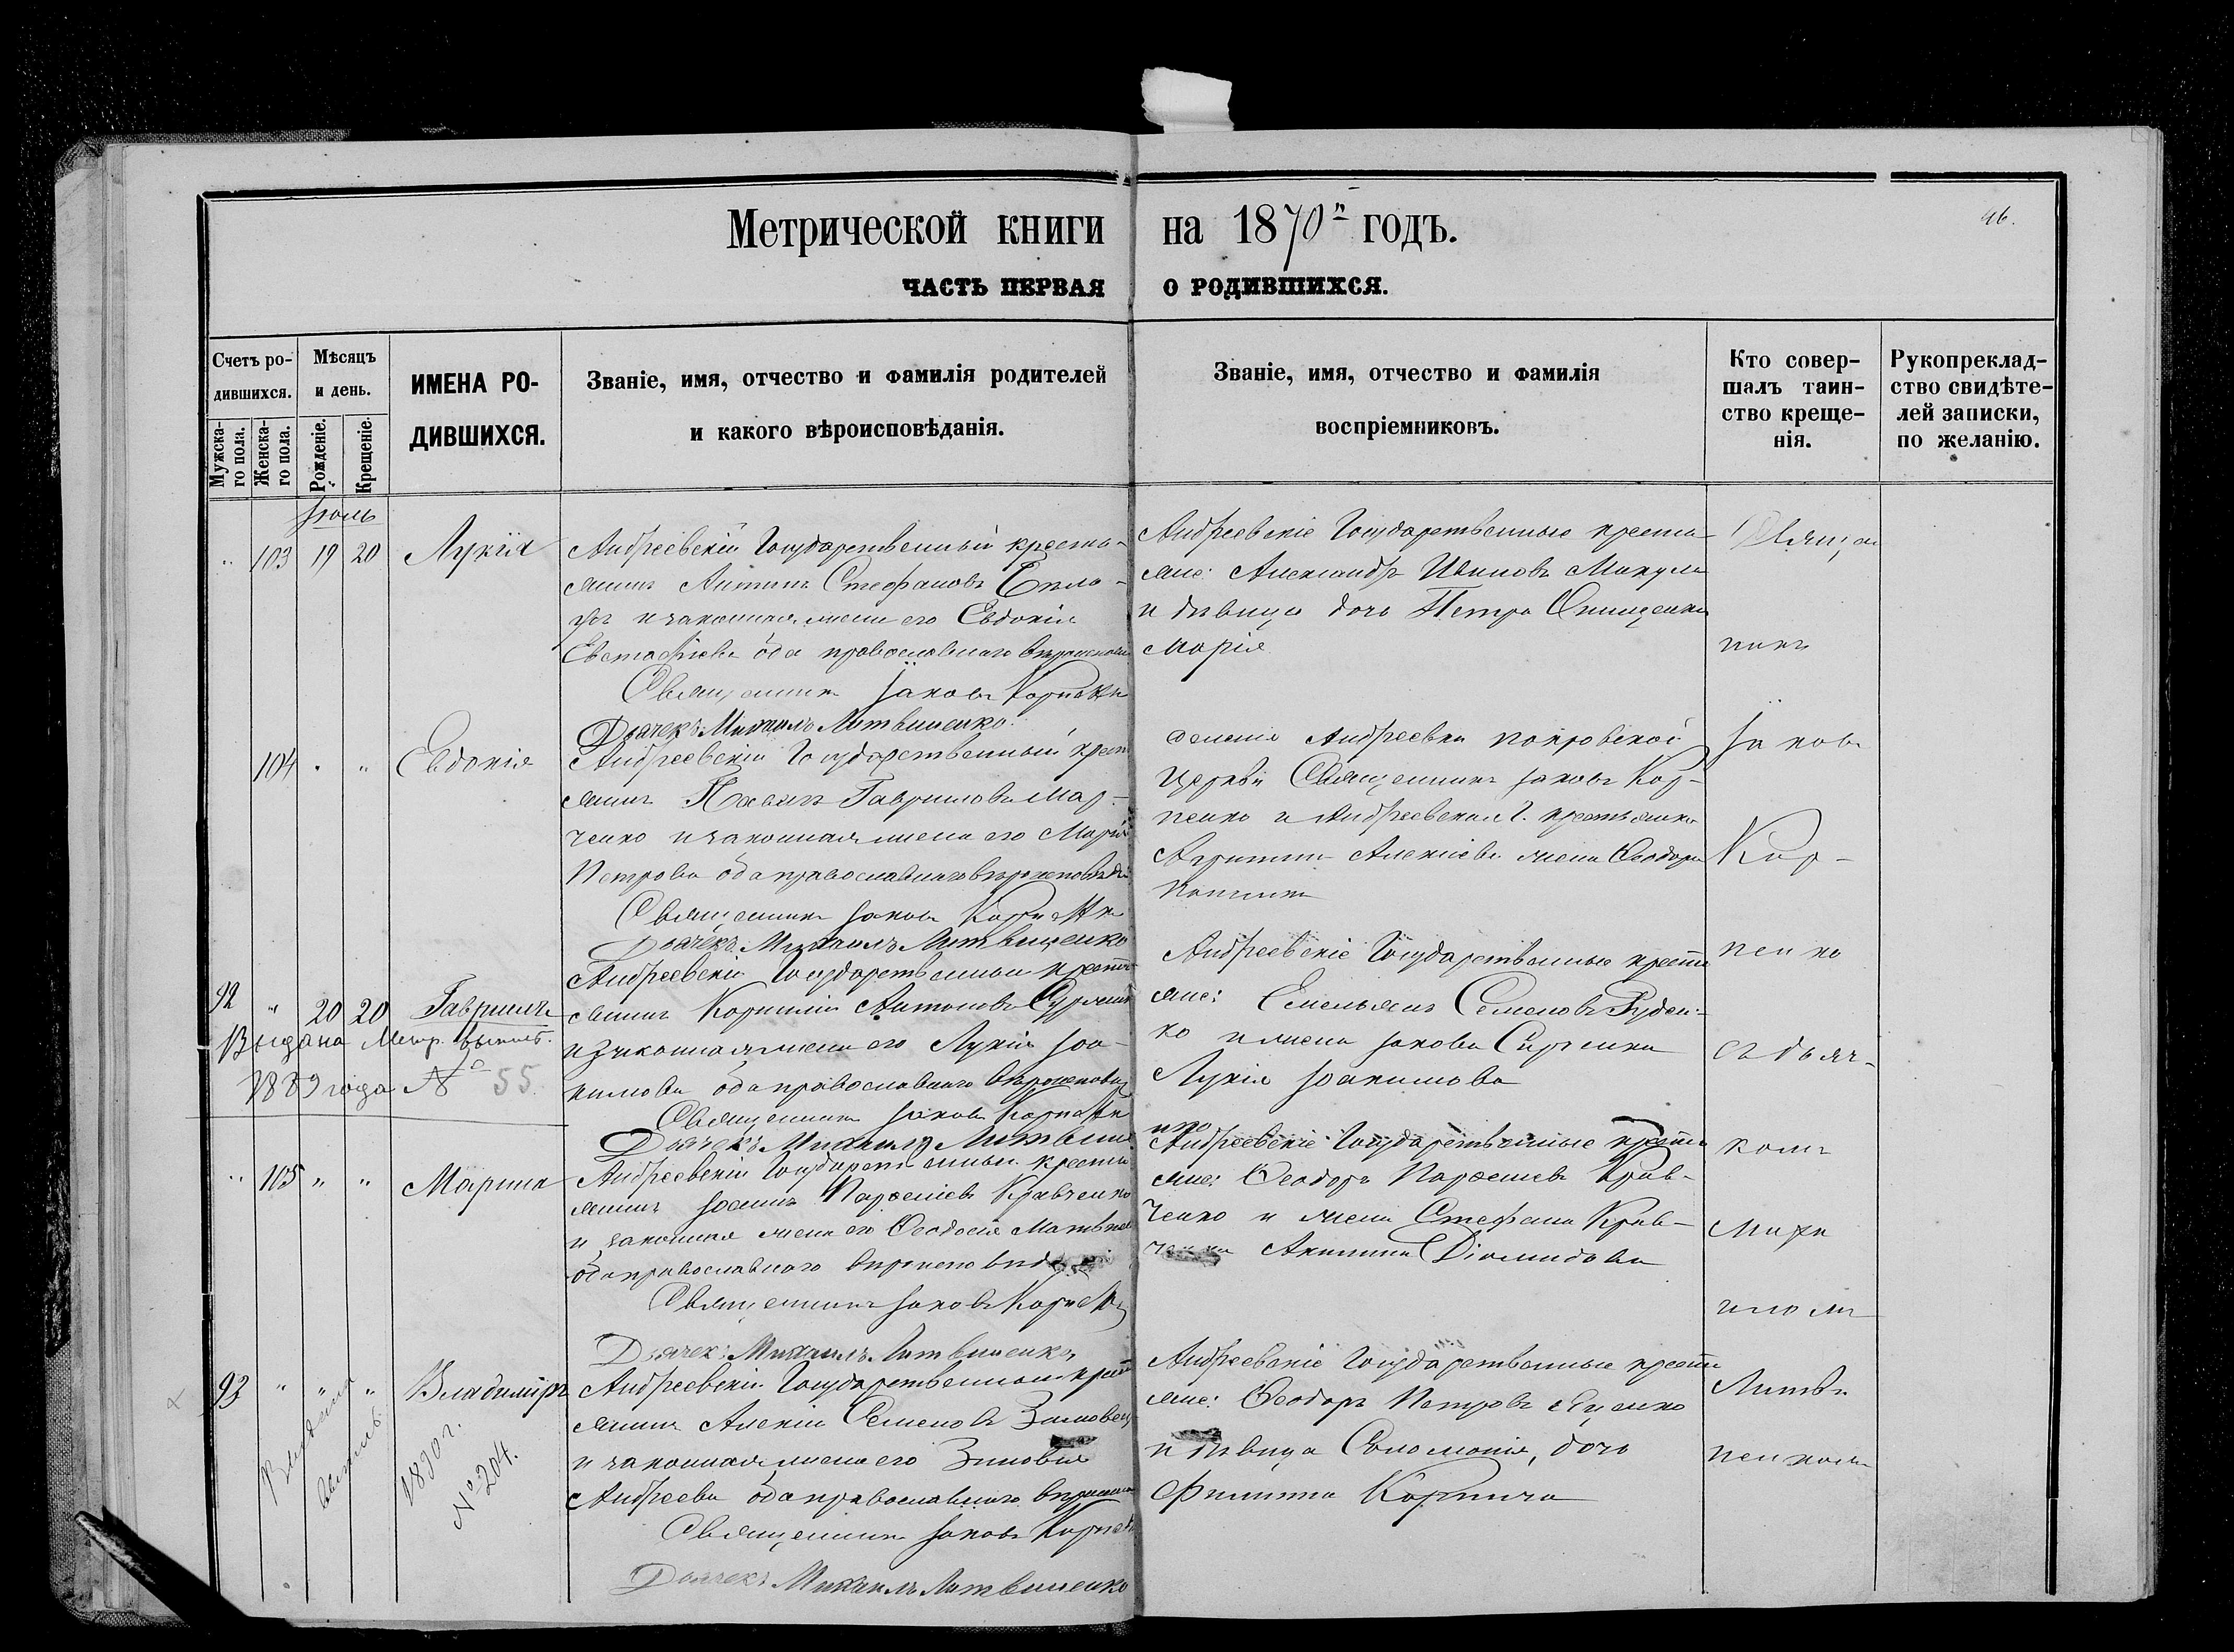 46.
Метрической книги на 1870й годъ.
ЧАСТЬ ПЕРВАЯ О РОДИВШИХСЯ.
Счетъ родившихся.
Мужска-
го пола.
Женска-
го пола.
Мѣсяцъ
и день.
Рожденіе.
Крещеніе.
ИМЕНА РО-
ДИВШИХСЯ.
Званіе, имя, отчество и фамилія родителей
и какого вѣроисповѣданія.
Званіе, имя, отчество и фамилія
воспріемниковъ.
Кто совер-
шалъ таин-
ство креще-
нія.
Рукопреклад-
ство свидѣте-
лей записки,
по желанію.
Іюль
103 19 20 Лукія
Андреевскій Государственный кресть-
янинъ Антипъ Стефановъ
и законная жена его Евдокія
Евстафіева оба православнаго
Священникъ Іаковъ
Дьячекъ Михаилъ Литвиненко.
Андреевскіе Государственные кресть
яне: Александръ Ивановъ Микула
и дѣвица дочь Петра Онищенка
Марія
104 " " Евдокія
Андреевскій Государственный крест
янинъ Павелъ Гавриловъ Мар-
ченко и законная жена его Марія
Петрова оба православнаго вѣроисповѣд
Священникъ Іаковъ
Дьячекъ Михаилъ Литвиненко
селенія Андреевки Покровской
Церкви Священникъ Іаковъ Кар-
пенко и Андреевская Г. крестьянка
Агрипина Алексіева жена Ѳеодора
92 " 20 20 Гавріилъ
Выдана Метр. выпись.
1889 года № 55.
Андреевскій Государственный крест
янинъ Корнилій Антоновъ
и законная жена его Лукія Іоа-
кимова оба православнаго вѣроисповѣд
Священникъ Іаковъ
Дьячекъ Михаилъ Литвинен
ко
Андреевскіе Государственные крест
яне: Емельянъ Семеновъ Руден-
ко и жена Іакова
Лукія Іоакимова
" 105 " " Марина
Андреевскій Государственный кресть
янинъ Парѳеніевъ Кравченко
и законная жена его Ѳеодосія
оба православнаго вѣроисповѣд
Священникъ Іаковъ
Дьячекъ Михаилъ Литвиненко
Андреевскіе Государственные крест
яне: Ѳеодоръ Парѳеніевъ Крав-
ченко и жена Стефана Крав-
ченка Акилина Діомидова
93 " " " Владиміръ
Выдана
выпись.
1890 г.
№ 204.
Андреевскій Государственный крест
янинъ Алексій Семеновъ
и законная жена его Зиновія
Андреева оба православнаго
Священникъ Іаковъ
Дьячекъ Михаилъ Литвиненко
Андреевскіе Государственные крест
яне: Ѳеодоръ Петровъ Яценко
и дѣвица Соломонія, дочь
Филиппа
Священ
никъ
Іаковъ
Кар-
пенко
съ дьяч-
комъ
Миха
иломъ
Литви
ненком